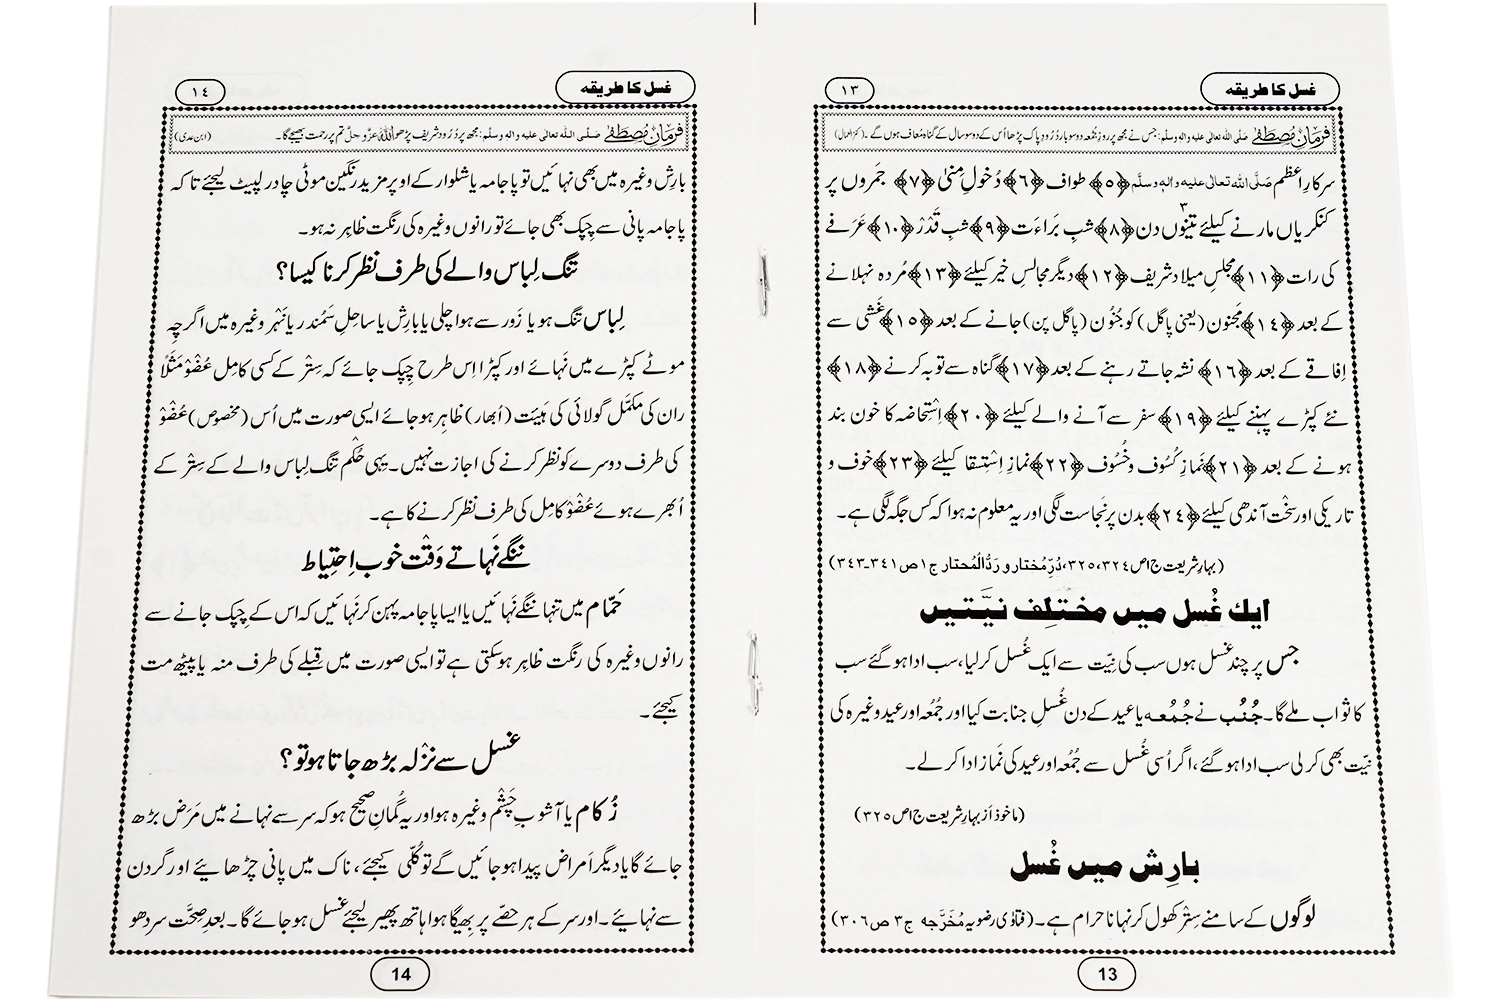 غسل کا طریقہ
۱۳
فرمانِ مُصطَفٰے صَلَّی اللہ تعالٰی علیہ والہٖ وسلَّم: جس نے مجھ پر روزِ جُمعہ دو سو بار دُرُود پاک پڑھا اُس کے دو سو سال کے گناہ مُعاف ہوں گے۔ (کنزالعمال)
سرکارِ اعظم صَلَّی اللہ تعالٰی علیہ والہٖ وسلَّم ﴿۵﴾ طواف ﴿۶﴾ دُخولِ مِنیٰ ﴿۷﴾ جَمروں پر
کنکریاں مارنے کیلئے تینوں دن ﴿۸﴾ شبِ بَراءَت ﴿۹﴾ شبِ قَدْر ﴿۱۰﴾ عَرَفے
۳
کی رات ﴿۱۱﴾ مجلسِ میلاد شریف ﴿۱۲﴾ دیگر مجالسِ خیر کیلئے ﴿۱۳﴾ مُردہ نہلانے
کے بعد ﴿۱۴﴾ مجنون (یعنی پاگل) کو جُنُون (پاگل پن) جانے کے بعد ﴿۱۵﴾ غَشی سے
اِفاقے کے بعد ﴿۱۶﴾ نشہ جاتے رہنے کے بعد ﴿۱۷﴾ گناہ سے توبہ کرنے ﴿۱۸﴾
نئے کپڑے پہننے کیلئے ﴿۱۹﴾ سفر سے آنے والے کیلئے ﴿۲۰﴾ اِستِحاضہ کا خون بند
ہونے کے بعد ﴿۲۱﴾ نَمازِ کُسُوف و خُسُوف ﴿۲۲﴾ نمازِ اِستِسقا کیلئے ﴿۲۳﴾ خوف و
تاریکی اور سَخْت آندھی کیلئے ﴿۲۴﴾ بدن پر نَجاست لگی اور یہ معلوم نہ ہوا کہ کس جگہ لگی ہے۔
(بہارِ شریعت ج۱ص ۳۲۴، ۳۲۵، دُرِّمُختار و رَدُّالْمُحتار ج۱ ص ۳۴۱-۳۴۳)
ایک غُسل میں مختلِف نیّتیں
جس پر چند غسل ہوں سب کی نیّت سے ایک غُسل کر لیا، سب ادا ہو گئے سب
کا ثواب ملے گا۔ جُنُب نے جُمُعہ یا عید کے دن غُسلِ جنابت کیا اور جُمُعہ اور عید وغیرہ کی
نیّت بھی کر لی سب ادا ہو گئے، اگر اُسی غُسل سے جُمُعہ اور عید کی نَماز ادا کر لے۔
(ماخوذ اَز بہارِ شریعت ج۱ص ۳۲۵)
بارِش میں غُسل
لوگوں کے سامنے سِتْر کھول کر نہانا حرام ہے۔ (فتاوٰی رضویہ مُخَرَّجہ ج۳ ص ۳۰۶)
13
غسل کا طریقہ
۱٤
فرمانِ مُصطَفٰے صَلَّی اللہ تعالٰی علیہ والہٖ وسلَّم: مجھ پر دُرُود شریف پڑھو اللہ عزَّوجلَّ تم پر رحمت بھیجے گا۔ (ابن عدی)
بارِش وغیرہ میں بھی نہائیں تو پاجامہ یا شلوار کے اوپر مزید رنگین موٹی چادر لپیٹ لیجئے تاکہ
پاجامہ پانی سے چِپک بھی جائے تو رانوں وغیرہ کی رنگت ظاہِر نہ ہو۔
تنگ لِباس والے کی طرف نظر کرنا کیسا؟
لِباس تنگ ہو یا زَور سے ہوا چلی یا بارِش یا ساحلِ سَمُندر یا نَہر وغیرہ میں اگرچِہ
موٹے کپڑے میں نَہائے اور کپڑا اِس طرح چِپک جائے کہ سِتْر کے کسی کامِل عُضْوْ مَثَلًا
ران کی مکمَّل گولائی کی ہَیئت (اُبھار) ظاہِر ہو جائے ایسی صورت میں اُس (مخصوص) عُضْوْ
کی طرف دوسرے کو نظر کرنے کی اجازت نہیں۔ یہی حُکم تنگ لِباس والے کے سِتْر کے
اُبھرے ہوئے عُضْوِ کامل کی طرف نظر کرنے کا ہے۔
ننگے نَہاتے وَقْت خوب اِحتِیاط
حَمّام میں تنہا ننگے نَہائیں یا ایسا پاجامہ پہن کر نَہائیں کہ اس کے چِپک جانے سے
رانوں وغیرہ کی رنگت ظاہِر ہو سکتی ہے تو ایسی صورت میں قِبلے کی طرف منہ یا پیٹھ مت
کیجئے۔
غسل سے نَزْلہ بڑھ جاتا ہو تو؟
زُکام یا آشوبِ چَشْم وغیرہ ہو اور یہ گُمانِ صحیح ہو کہ سر سے نہانے میں مَرَض بڑھ
جائے گا یا دیگر اَمراض پیدا ہو جائیں گے تو کُلّی کیجئے، ناک میں پانی چڑھائیے اور گردن
سے نہائیے۔ اور سر کے ہر حصّے پر بِھیگا ہوا ہاتھ پھیر لیجئے غسل ہو جائے گا۔ بعدِ صِحّت سر دھو
14